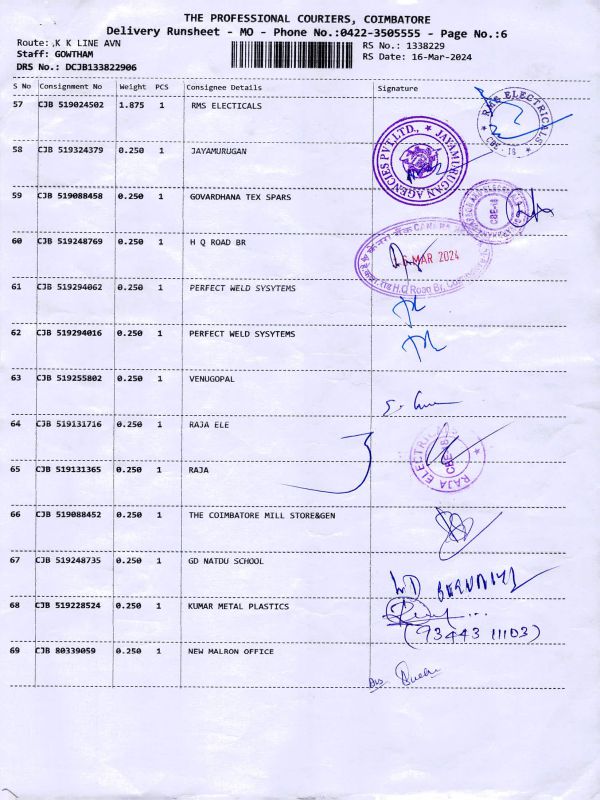 THE PROFESSIONAL COURIERS, COIMBATORE
Delivery Runsheet - MO - Phone No.:0422-3505555 - Page No.:6
Route: ,K K LINE AVN
RS No.: 1338229
Staff: GOWTHAM
RS Date: 16-Mar-2024
DRS No.: DCJB133822906
S No Consignment No Weight PCS Consignee Details Signature
57 CJB 519024502 1.875 1 RMS ELECTICALS
RMS ELECTRICALS
58 CJB 519324379 0.250 1 JAYAMURUGAN
JAYAMURUGAN AGENCIES PVT.LTD.,
59 CJB 519088458 0.250 1 GOVARDHANA TEX SPARS
CBE-18
60 CJB 519248769 0.250 1 H Q ROAD BR
MAR 2024
H.Q Road Br,
61 CJB 519294062 0.250 1 PERFECT WELD SYSYTEMS
62 CJB 519294016 0.250 1 PERFECT WELD SYSYTEMS
63 CJB 519255802 0.250 1 VENUGOPAL
64 CJB 519131716 0.250 1 RAJA ELE
RAJA ELECTRICALS
CBE-18
65 CJB 519131365 0.250 1 RAJA
66 CJB 519088452 0.250 1 THE COIMBATORE MILL STORE&GEN
67 CJB 519248735 0.250 1 GD NATDU SCHOOL
68 CJB 519228524 0.250 1 KUMAR METAL PLASTICS
(93443 11103)
69 CJB 80339059 0.250 1 NEW MALRON OFFICE